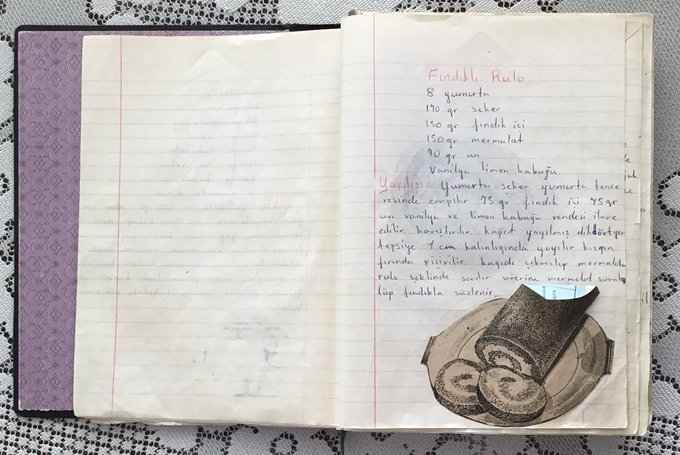 Fındıklı Rulo
8 yumurta
170 gr şeker
150 gr fındık içi
150 gr mermalat
70 gr un
Vanilya limon kabuğu
Yapılışı: Yumurta şeker yumurta tence
resinde çırpılır 75 gr fındık içi 75 gr
un vanilya ve limon kabuğu rendesi ilave
edilir karıştırılır kağıt yayılmış dikdörtgen
tepsiye 1 cm kalınlığında yayılır kızgın
fırında pişirilir. kağıdı çıkarılıp mermalatla
rulo şeklinde sarılır üzerine mermelat sürülüp
tüp fındıkla süslenir.